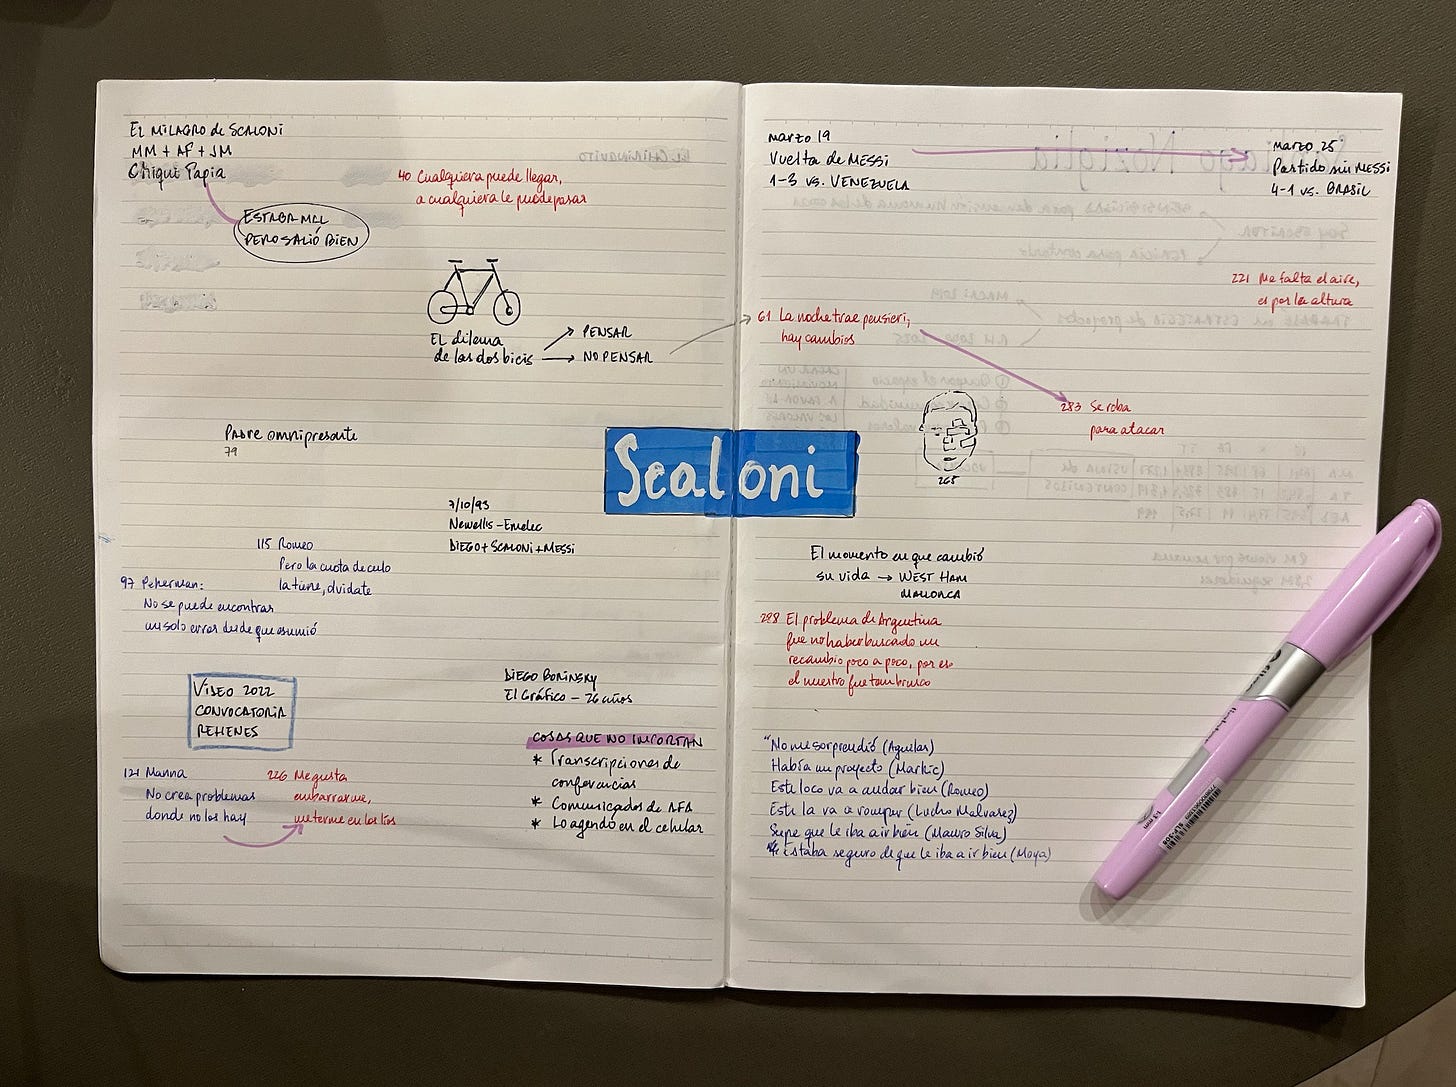 EL MILAGRO de SCALONI
MM + AF + JM
Chiqui Tapia
ESTABA MAL
PERO SALIÓ BIEN
40 Cualquiera puede llegar,
a cualquiera le puede pasar
EL dilema
de las dos bicis
PENSAR
NO PENSAR
Padre omnipresente
79
7/10/93
Newells-Emelec
DIEGO+SCALONI+MESSI
115 Romeo
Pero la cuota de culo
la tiene, olvidate
97 Pekerman:
No se puede encontrar
un solo error desde que asumió
VIDEO 2022
CONVOCATORIA
REHENES
DIEGO BORINSKY
El Gráfico – 26 años
COSAS QUE NO IMPORTAN
* Transcripciones de
conferencias
* Comunicados de AFA
* Lo agendó en el celular
121 Manna
No crea problemas
donde no los hay
226 Me gusta
embarrarme,
meterme en los líos
Scaloni
marzo 19
Vuelta de MESSI
1-3 vs. VENEZUELA
marzo 25
Partido sin MESSI
4-1 vs. BRASIL
221 Me falta el aire,
es por la altura
61 La noche trae pensieri,
hay cambios
283 Se roba
para atacar
268
El momento en que cambió
su vida → WEST HAM
MALLORCA
298 El problema de Argentina
fue no haber buscado un
recambio poco a poco, por eso
el nuestro fue tan brusco
"No me sorprendió (Aguilar)
Había un proyecto (Markic)
Este loco va a andar bien (Romeo)
Este la va a romper (Lucho Malvarez)
Supe que le iba a ir bien (Mauro Silva)
Estaba seguro de que le iba a ir bien (Moya)